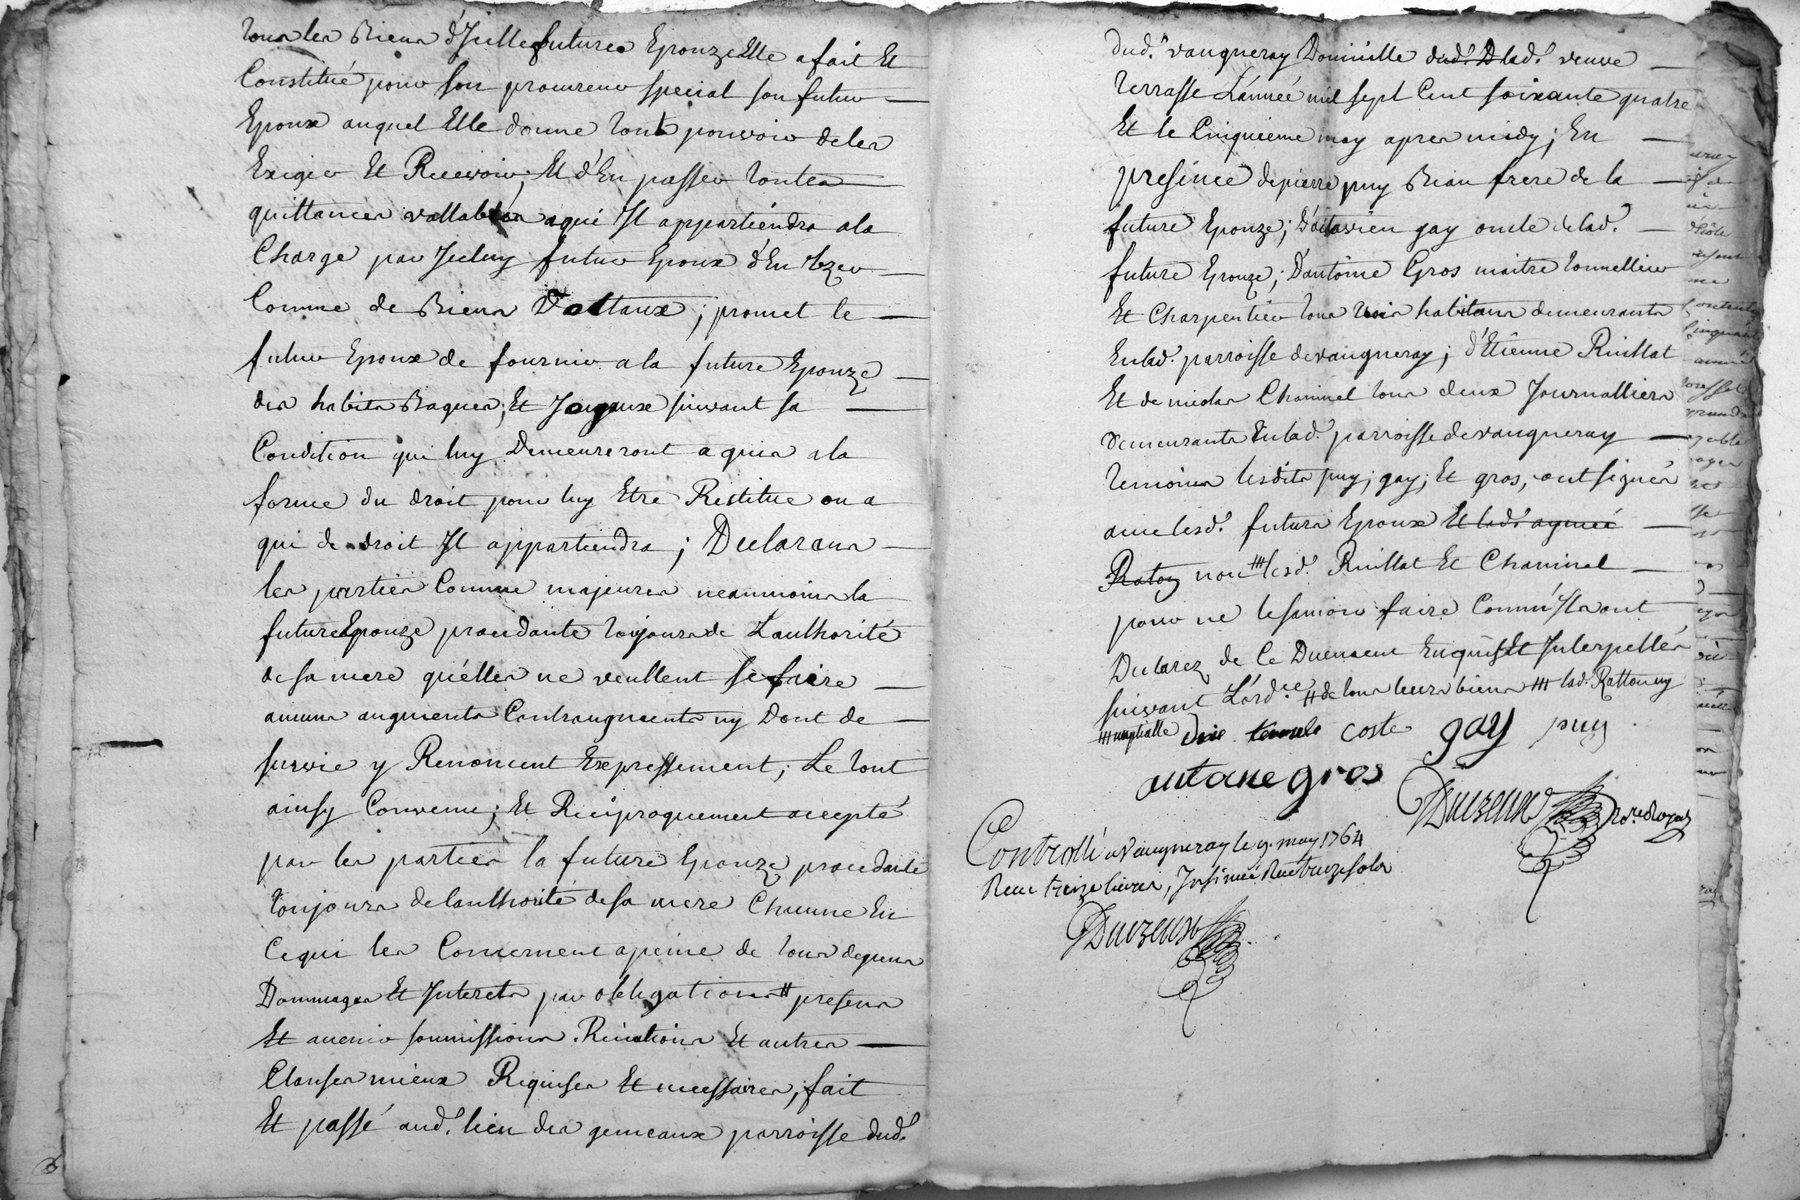 tous les Biens d'Jcelle future Epouze Elle a fait Et
Constitué pour son procureur special son futur
Epoux auquel Elle donne tout pouvoir de les
Exiger Et Recevoir; Et d'En passer toutes
quittances vallables a qui Jl appartiendra a la
Charge par Jceluy futur Epoux d'En Uzer
Comme de Biens Dottaux; promet le
futur Epoux de fournir a la future Epouze
des habits Bagues, Et Joyaux suivant sa
Condition qui luy Demeureront aquis a la
forme du droit pour luy Etre Restitue ou a
qui de droit Jl appartiendra; Declarans
les parties Comme majeures neanmoins la
future Epouze procedante toujours de L'authorité
de sa mere qu'elles ne veullent se faire
aucuns augments Contraugments ny Dont de
survie y Renoncent Expressement; Le tout
ainsy Convenu; Et Reciproquement accepté
par les parties la future Epouze procedante
toujours de l'authorité de sa mere Chacune En
ce qui les Concernent a peine de tous depens
Dommages Et Interets par obligations # presens
Et avenir soumissions. Renontions Et autres
Clauses mieux Requises Et necessaires; fait
Et passé aud. lieu des gemeaux parroisse dud.
dud. vaugneray Domicille dud. D lad. veuve
terrasse L'année mil sept Cent soixante quatre
Et le Cinquieme may apres midy; En
presence de pierre puy Beau frere de la
future Epouze; D'octavien gay oncle de lad.
future Epouze; D'antoine Gros maitre tonnellier
Et Charpentier tous trois habitans demeurants
En lad. parroisse de vaugneray; d'Etienne Rivillat
Et de nicolas Chaninel tous deux Journalliers
demeurants En lad. parroisse de vaugneray
temoins lesdits puy; gay; Et gros, ont signés
avec lesd. futurs Epoux Et lad. aymée
Ratoy non lesd. Rivillat Et Chaninel
pour ne le savoir faire Comm' Jls ont
Declarez de Ce Duement Enquis Et Interpellés
suivant L'ord.ce # de tous leurs biens lad. Rattouny
coste gay puy
antoine gros
Duizeux No.re Royal
Controllé a Vaugneray le 9. may 1764
Receu treize livres, Insinué Receu treize sols
Duizeux